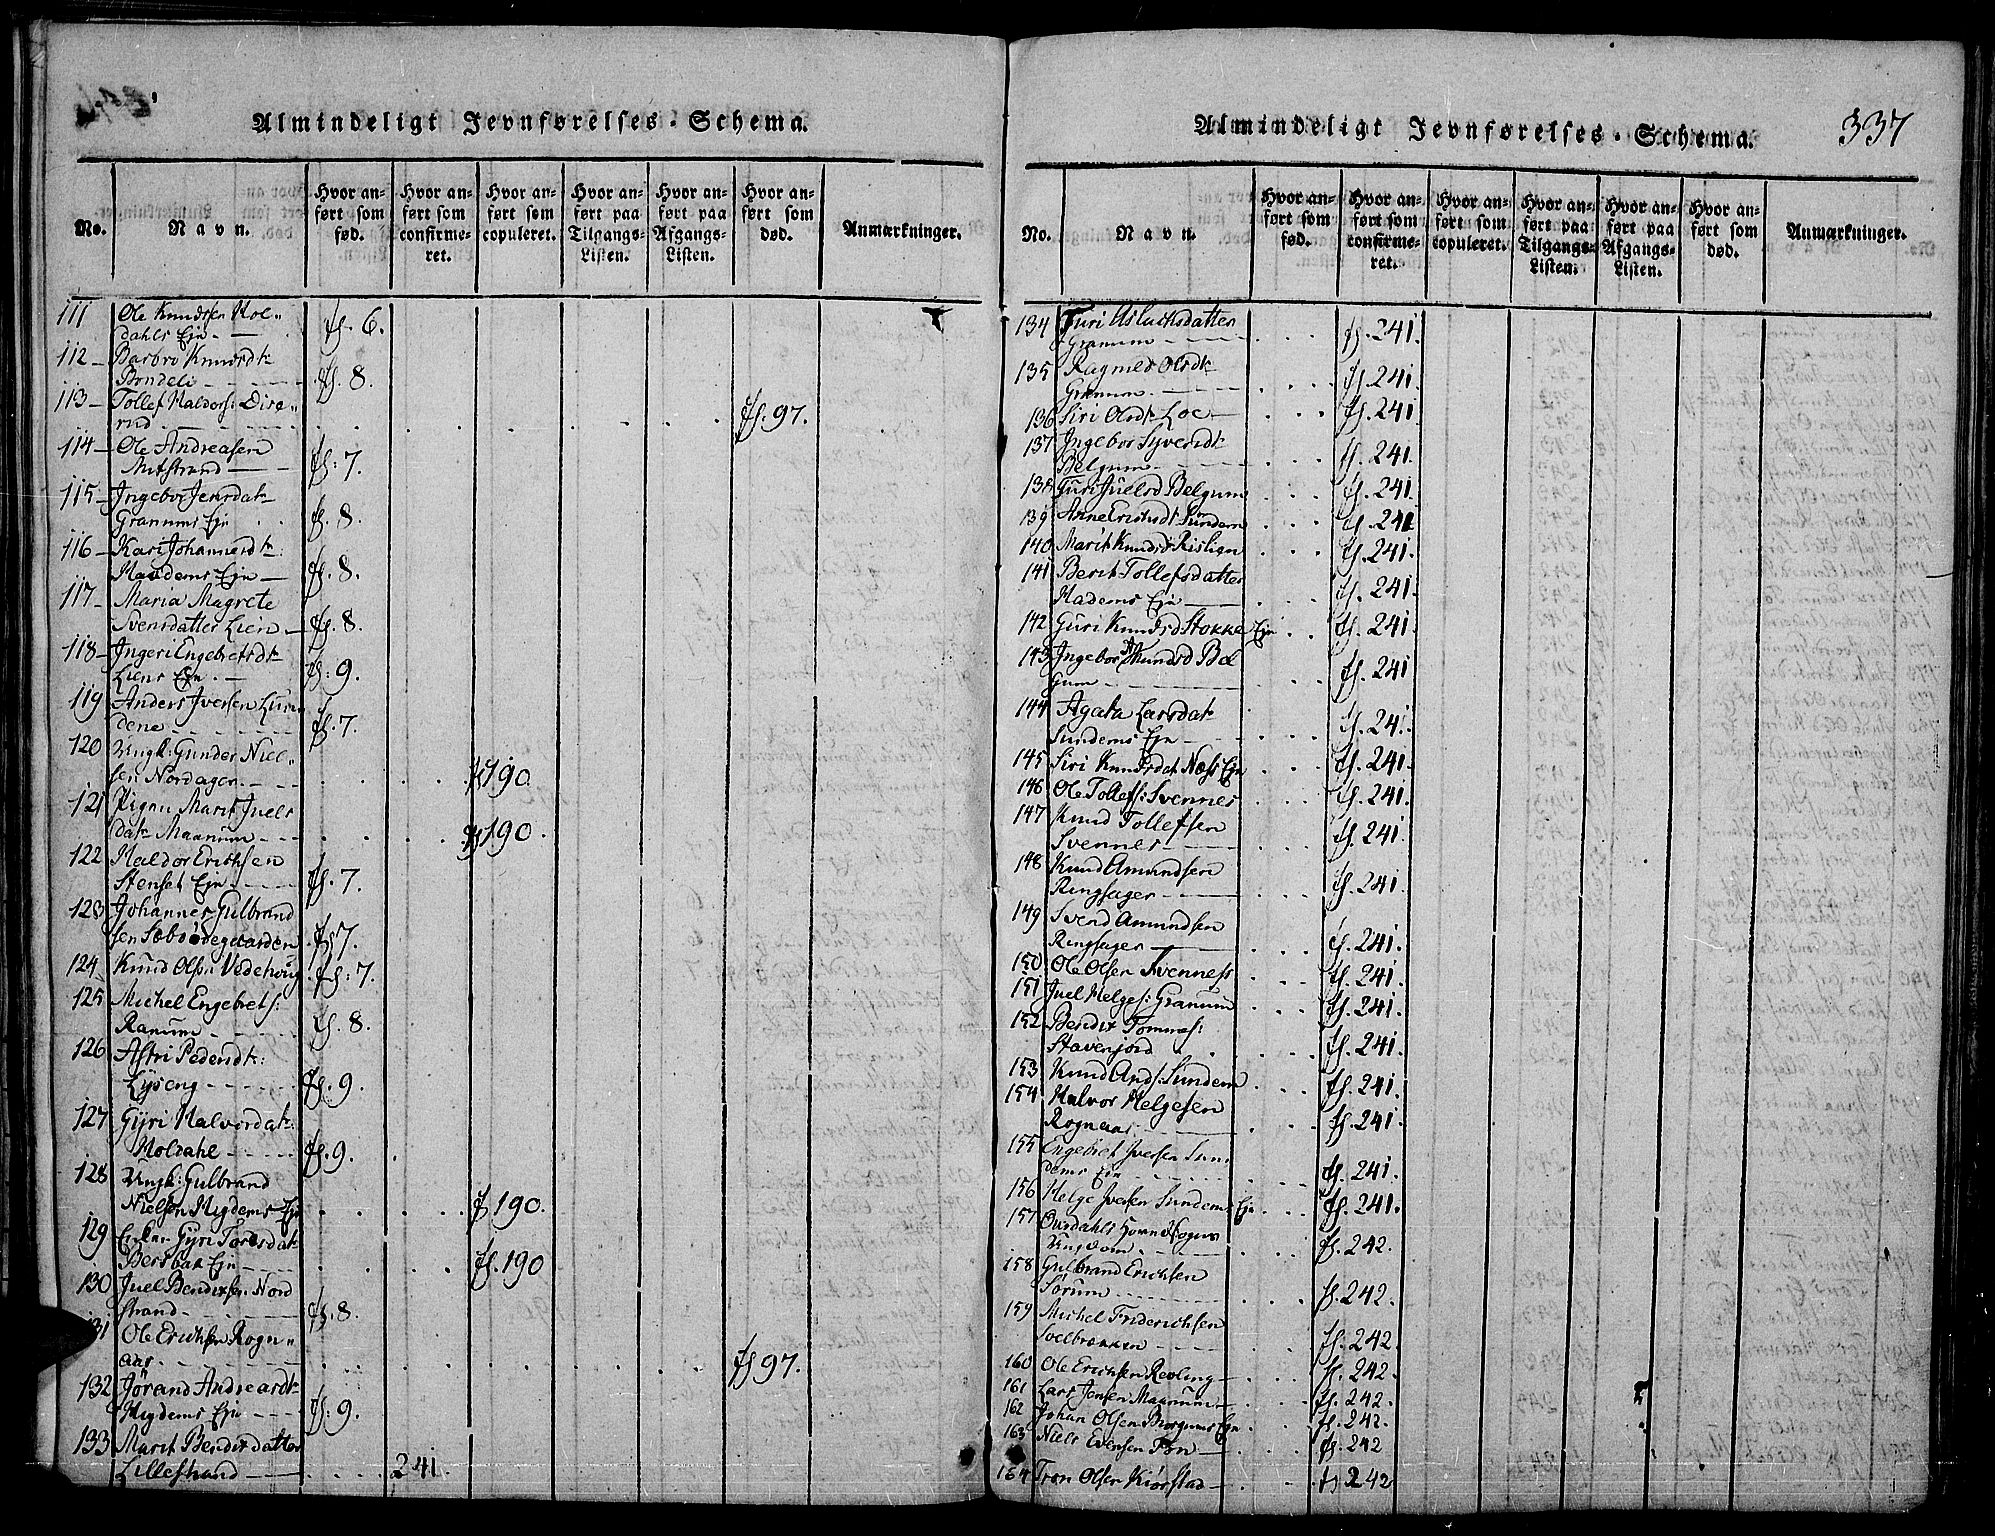 Almindeligt Jevnførelses-Schema.
No.
Navn.
Hvor anført som fød.
Hvor anført som confirmeret.
Hvor anført som copuleret.
Hvor anført paa Tilgangs-Listen.
Hvor anført paa Afgangs-Listen.
Hvor anført som død.
Anmærkninger.
111 Ole Knudsen Hol„
dahls Ejn. fs. 6.
112 Barbro Knudsdtr
Bondeli fs. 8.
113 Tollef Haldors: Dise„
rud fs. 97.
114 Ole Andreasen
Nitstrand fs: 7.
115 Ingebor Jensdatr
Granums Ejn fs. 8.
116 Kari Johannesdtr:
Haadems Ejn fs. 8.
117 Maria Magrete
Svensdatter Lien fs. 8.
118 Ingeri Engebretsdtr
Liens Ejn. fs: 9.
119 Anders Iversen Lun„
dene fs. 7.
120 Ungk: Gunder Niel„
sen Nordager. fs 190.
121 Pigen Marit Juels
datr Maanum fs 190.
122 Haldor Erichsen
Stenset Ejn fs. 7.
123 Johannes Gulbrand
sen Sebsødegaarden fs 7.
124 Knud Olsen Vedehoug fs: 7.
125 Michel Engebrets:
Ranum fs. 8.
126 Astri Pedersdtr:
Lyseng fs. 9.
127 Gyri Halvordatr:
Holdahl fs. 9.
128 Ungk: Gulbrand
Nielsen Mygdems Ejn fs 190.
129 Enken Gyri Toresdatr
Bersbak Ejn fs. 190
130 Juel Bendixsen Nord
strand fs. 8.
131 Ole Erichsen Rogn„
aas. fs 97.
132 Jörand Andreasdtr
Mygdems Ejn fs: 9.
133 Marit Bendixdatter
Lillestrand 241.
Almindeligt Jevnførelses-Schema.
337
No.
Navn.
Hvor anført som fød.
Hvor anført som confirmeret.
Hvor anført som copuleret.
Hvor anført paa Tilgangs-Listen.
Hvor anført paa Afgangs-Listen.
Hvor anført som død.
Anmærkninger.
134 Turi Aslachsdatter
Granum fs. 241.
135 Ragnild Olsdtr
Granum. fs. 241
136 Siri Olsdtr Loe fs. 241
137 Ingebor Syversdtr
Belgum fs. 241
138 Guri Juelsd Belgum fs. 241
139 Anne Erichsdt Sundem fs. 241
140 Marit Knudsd Rislien fs. 241
141 Berit Tollefsdatter
Hadems Ejn fs. 241
142 Guri Knudsd Stokke Ejn fs. 241
143 Ingebor Amundsd Bel
gum fs. 241
144 Agata Larsdatr
Sundems Ejn fs. 241
145 Siri Knudsdat Næss Ejn fs. 241
146 Ole Tollefs: Svennes fs. 241.
147 Knud Tollefsen
Svennes fs. 241
148 Knud Amundsen
Ringsager fs. 241.
149 Svend Amundsen
Ringsager fs. 241.
150 Ole Olsen Svennes fs. 241.
151 Juel Helges: Granum fs. 241.
152 Bendix Tommes:
Stavenjord fs. 241.
153 Knud Ands: Sundem fs. 241.
154 Halvor Helgesen
Rognaas fs. 241.
155 Engebret Iversen Sun
dems Ejn fs. 241.
156 Helge Iversen Sundems Ejn fs. 241.
157 Ourdahls Hovedsogns
Ungdom. fs. 242.
158 Gulbrand Erichsen
Sørum fs. 242.
159 Michel Friderichsen
Soelbrækken fs. 242
160 Ole Erichsen Revling fs. 242.
161 Lars Jensen Maanum fs. 242.
162 Johan Olsen Ejn fs. 242.
163 Niels Evensen Føn fs. 242
164 Tron Olsen Kiørstad fs 242